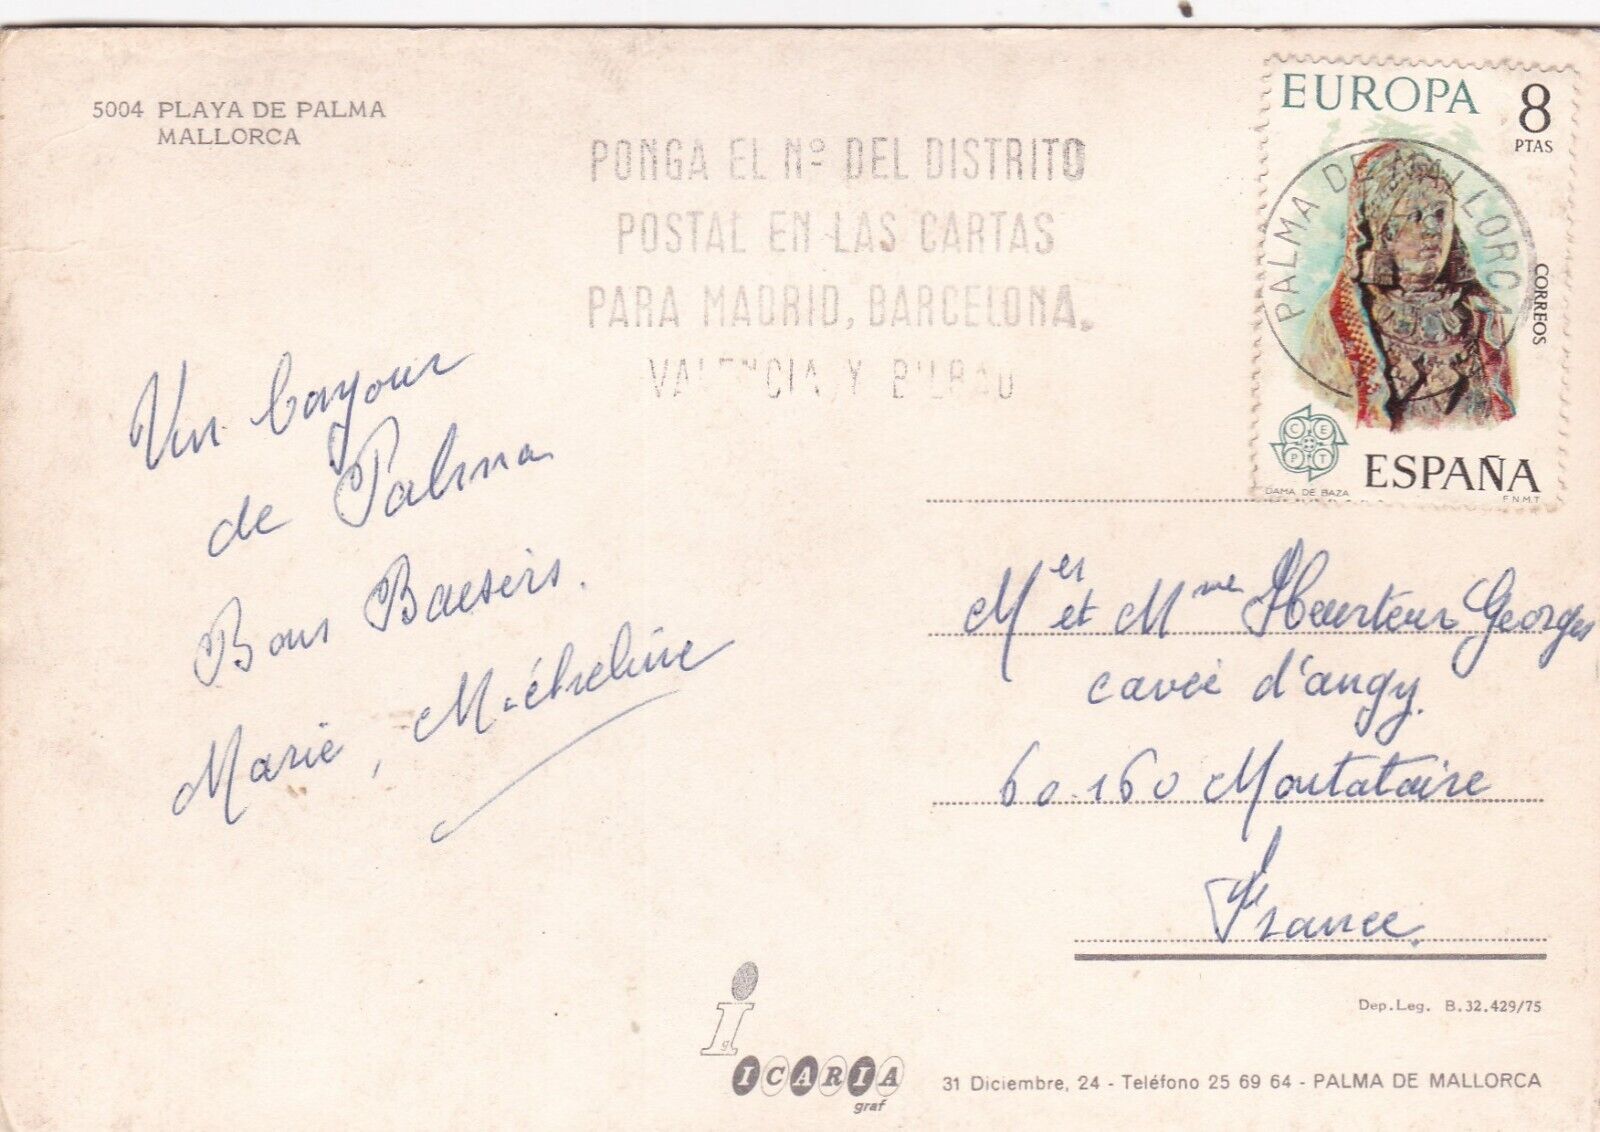 5004 PLAYA DE PALMA
MALLORCA
PONGA EL Nº DEL DISTRITO
POSTAL EN LAS CARTAS
PARA MADRID, BARCELONA,
VALENCIA Y BILBAO
EUROPA 8
PTAS
PALMA DE MALLORCA
CORREOS
CEPT
DAMA DE BAZA
ESPAÑA
F.N.M.T
Un bonjour
de Palma
Bons Baesers.
Marie, Micheline
Mer et Mme Heurteur Georges
cavée d'angy.
60.160 Montataire
France.
Dep.Leg. B.32.429/75
Ig
ICARIA
graf
31 Diciembre, 24 - Teléfono 25 69 64 - PALMA DE MALLORCA